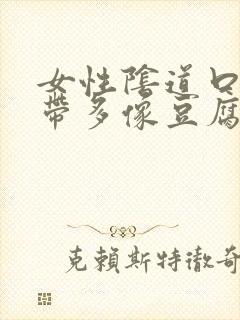 女性陰道口
帶多像豆腐
克賴斯特徹奇